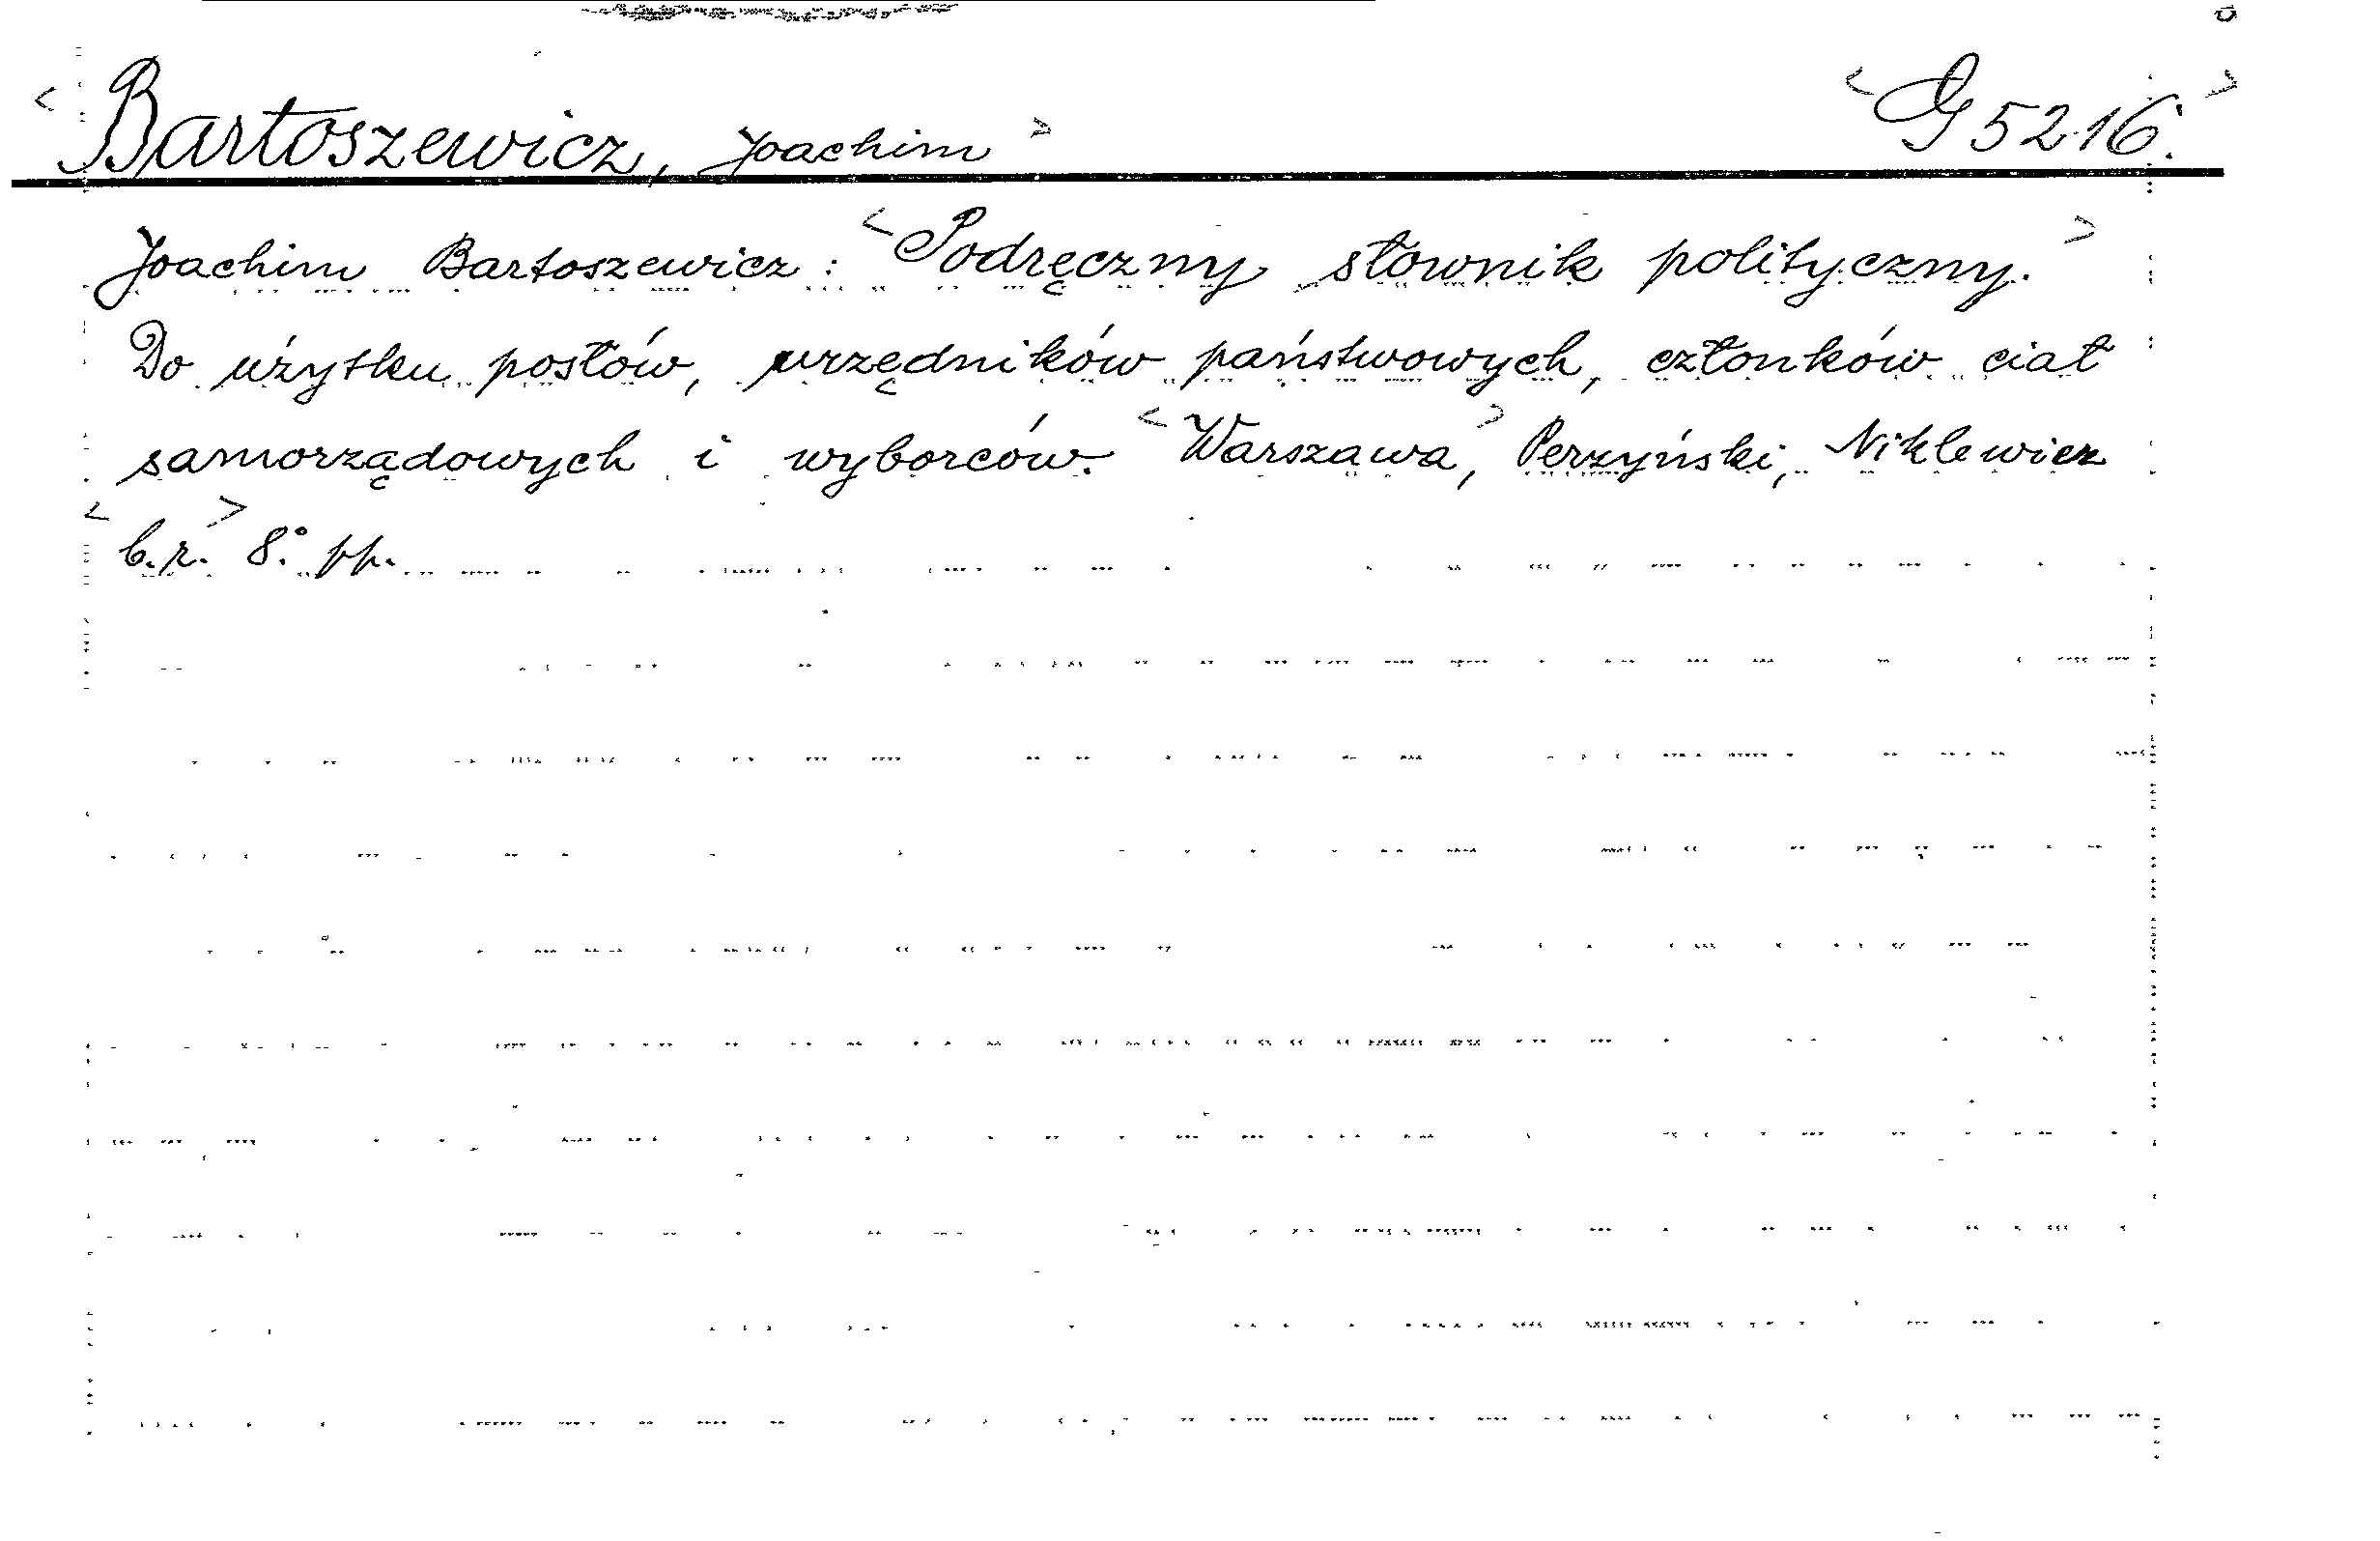 <Bartoszewicz, Joachim> <G 5216.>
Joachim Bartoszewicz: <Podręczny słownik polityczny.>
Do użytku posłów, urzędników państwowych, członków ciał
samorządowych i wyborców. <Warszawa,> Perzyński, Niklewicz
<b.r.> 8.° pp.